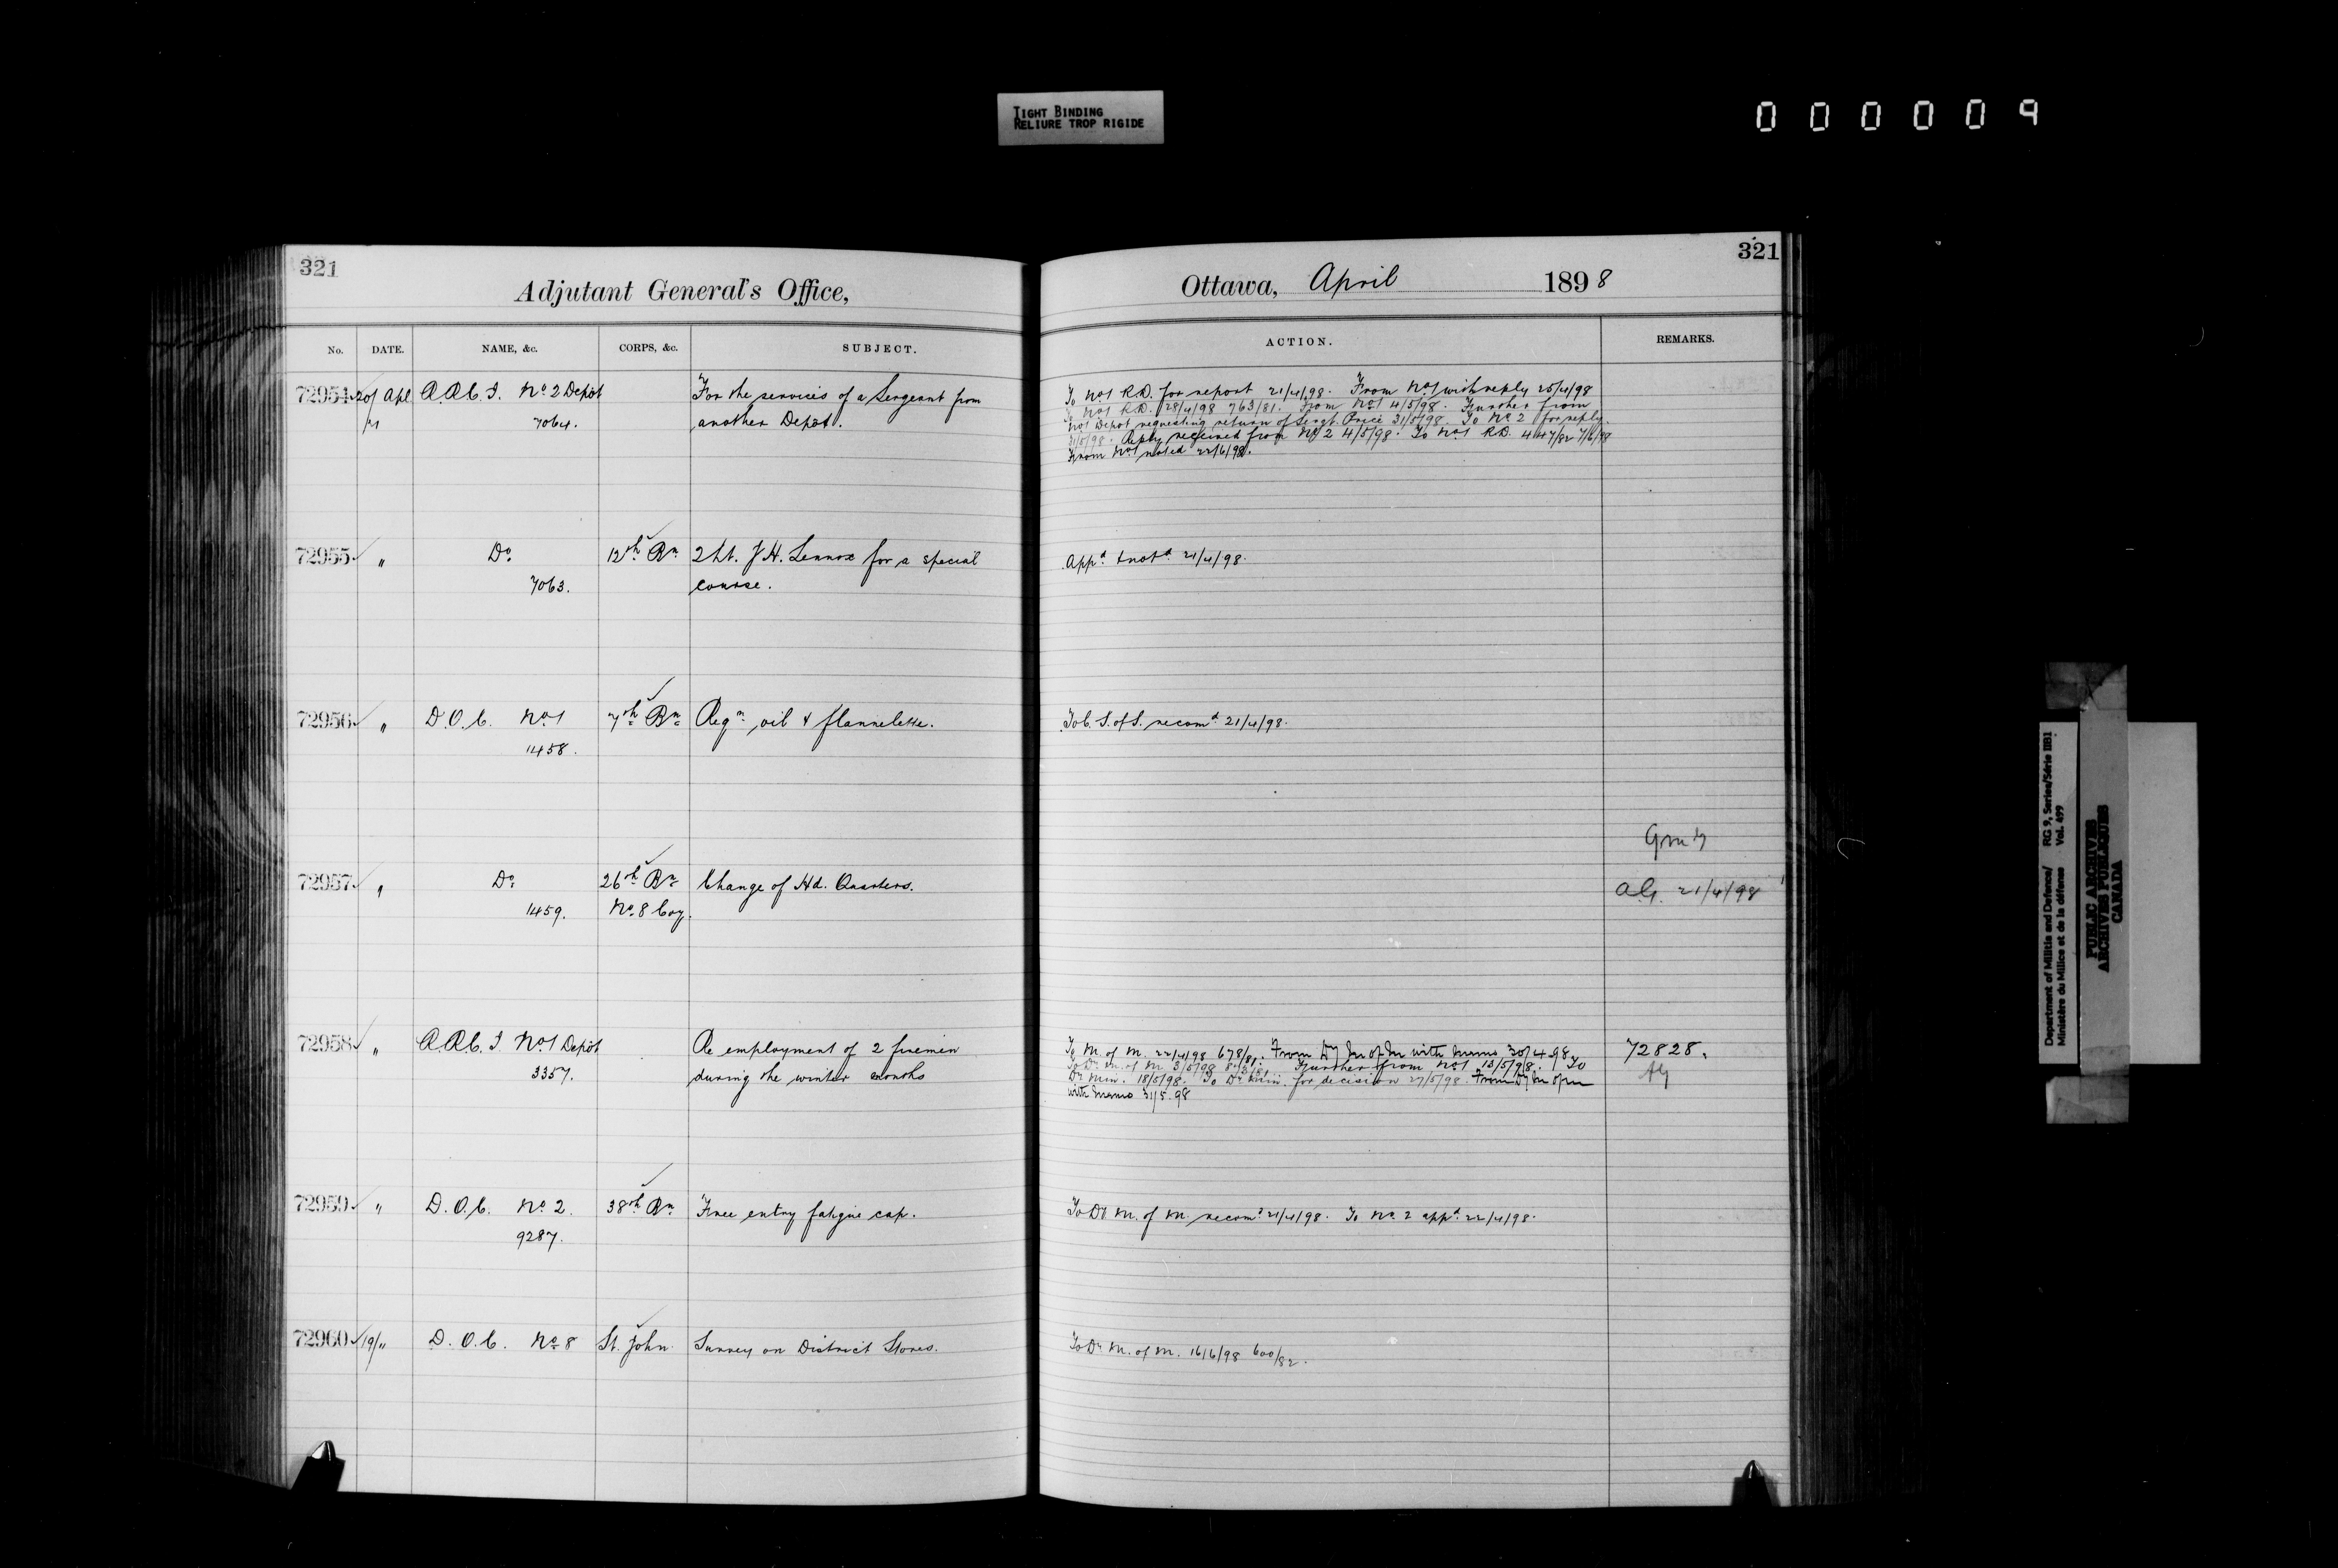 TIGHT BINDING
RELIURE TROP RIGIDE
000009
321
Adjutant General's Office,
No. DATE. NAME, &c. CORPS, &c. SUBJECT.
72954 20/ Apl R.R.C.I. No 2 Depôt For the services of a Sergeant from
7064. another Depôt.
72955 " Do 12th Bn 2 Lt. J H. Lennox for a special
7063. course.
72956 " D.O.C. No 1 7th Bn Reqn oil & flannelette.
1458.
72957 " Do 26th Bn Change of Hd. Quarters.
1459. No. 8 Coy.
72958 " R.R.C.I. No 1 Depôt Re employment of 2 firemen
3357. during the winter months
72959 " D.O.C. No 2. 38th Bn Free entry fatigue cap.
9287.
72960 19/" D.O.C. No 8 St. John. Survey on District Stores.
321
Ottawa, April 1898
ACTION. REMARKS.
To No 1 R.D. for report 21/4/98. From No 1 with reply 25/4/98
To No 1 R.D. 28/4/98 763/81. From No 1 4/5/98. Further from
No 1 Depot requesting return of Sergt. Price 31/5/98. To No 2 for reply
31/5/98. Reply received from No 2 4/5/98. To No 1 R.D. 447/82 7/6/98
From No 1 noted 22/6/98.
Appd & notd 21/4/98.
To C. S. of S. recomd 21/4/98.
A.G. 21/4/98
To M. of M. 22/4/98 678/81. From Dy M of M with memo 30/4 98 72828.
To Dr. M. of M 3/5/98 Further from No 1 13/5/98. To AG
Dr Min. 18/5/98. To Dr Min. for decision 27/5/98. From Dy M of M
with memo 31/5.98
To Dr M. of M. recomd 21/4/98. To No. 2 appd. 22/4/98.
To Dr M. of M. 16/6/98 600/82.
Department of Militia and Defence/ RG 9, Series/Série IIB1
Ministère du Milice et de la défense Vol. 499
PUBLIC ARCHIVES
ARCHIVES PUBLIQUES
CANADA